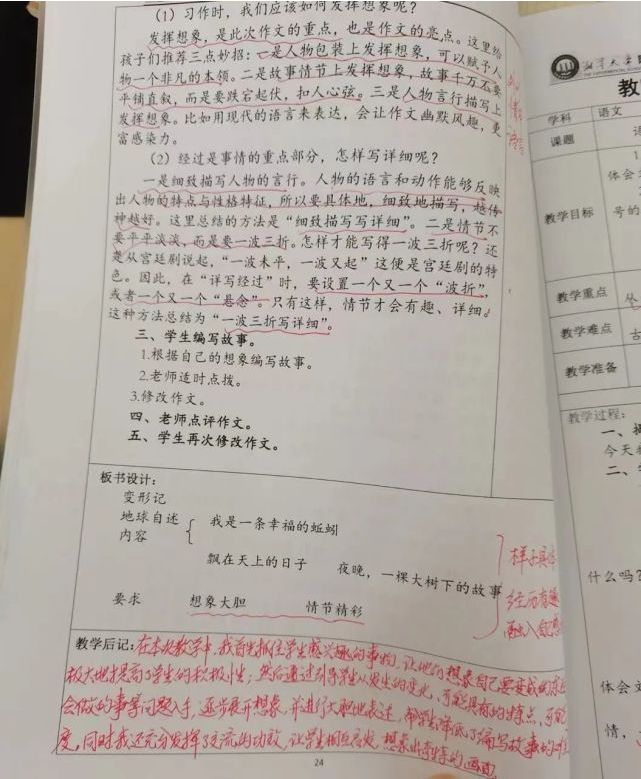 (1)习作时，我们应该如何发挥想象呢？
发挥想象，是此次作文的重点，也是作文的亮点。这里给
孩子们推荐三点妙招：一是人物包装上发挥想象，可以赋予人
物一个非凡的本领。二是故事情节上发挥想象，故事千万不要
平铺直叙，而是要跌宕起伏，扣人心弦。三是人物言行描写上
发挥想象。比如用现代的语言来表达，会让作文幽默风趣，更
富感染力。
(2)经过是事情的重点部分，怎样写详细呢？
一是细致描写人物的言行。人物的语言和动作能够反映
出人物的特点与性格特征，所以要具体地，细致地描写，越传
神越好。这里总结的方法是“细致描写写详细”。二是情节不
要平平淡淡，而是要一波三折。怎样才能写得一波三折呢？还
是从宫廷剧说起，“一波未平，一波又起”这便是宫廷剧的特
色。因此，在“详写经过”时，要设置一个又一个“波折”，
或者一个又一个“悬念”。只有这样，情节才会有趣、详细。
这种方法总结为“一波三折写详细”。
三、学生编写故事。
1.根据自己的想象编写故事。
2.老师适时点拨。
3.修改作文。
四、老师点评作文。
五、学生再次修改作文。
板书设计：
变形记
地球自述
内容
我是一条幸福的蚯蚓
飘在天上的日子
夜晚，一棵大树下的故事
要求 想象大胆 情节精彩
样子具体
经历有趣
融入
教学后记：在本次教学中，我首先抓住学生感兴趣的事物，让他们想象自己要变成的东西
极大地提高了学生的积极性；然后通过引导学生从发生的变化，可能具有的特点，可能
会做的事等问题入手，逐步展开想象，并进行大胆地表达，帮学生降低了编写故事的难
度，同时我还充分发挥了交流的功效，让学生相互启发，想象出奇特的画面
24
教
学科
语文
课题
教学目标
体会
号的
教学重点
教学难点
教学准备
教学过程：
一、
今天
二、
什么吗？
体会文
情，